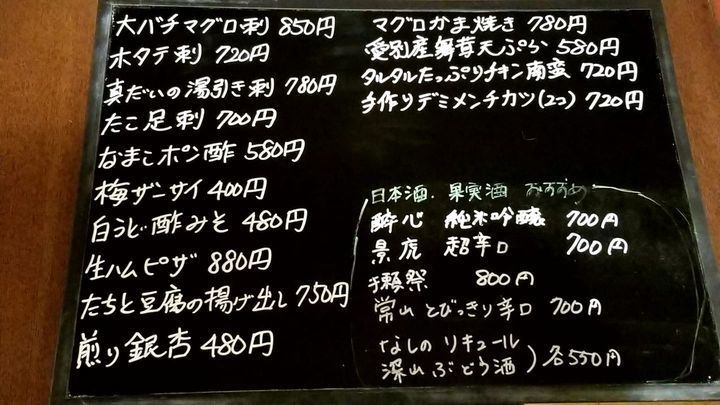 大バチマグロ刺 850円
ホタテ刺 720円
真だいの湯引き刺 780円
たこ足刺 700円
なまこポン酢 580円
梅ザーサイ 400円
白うど酢みそ 480円
生ハムピザ 880円
たちと豆腐の揚げ出し 750円
煎り銀杏 480円
マグロかま焼き 780円
愛別産舞茸天ぷら 580円
タルタルたっぷりチキン南蛮 720円
手作りデミメンチカツ(2コ) 720円
日本酒. 果実酒 おすすめ
酔心 純米吟醸 700円
景虎 超辛口 700円
獺祭 800円
常山 とびっきり辛口 700円
なしのリキュール
深山ぶどう酒 ) 各550円